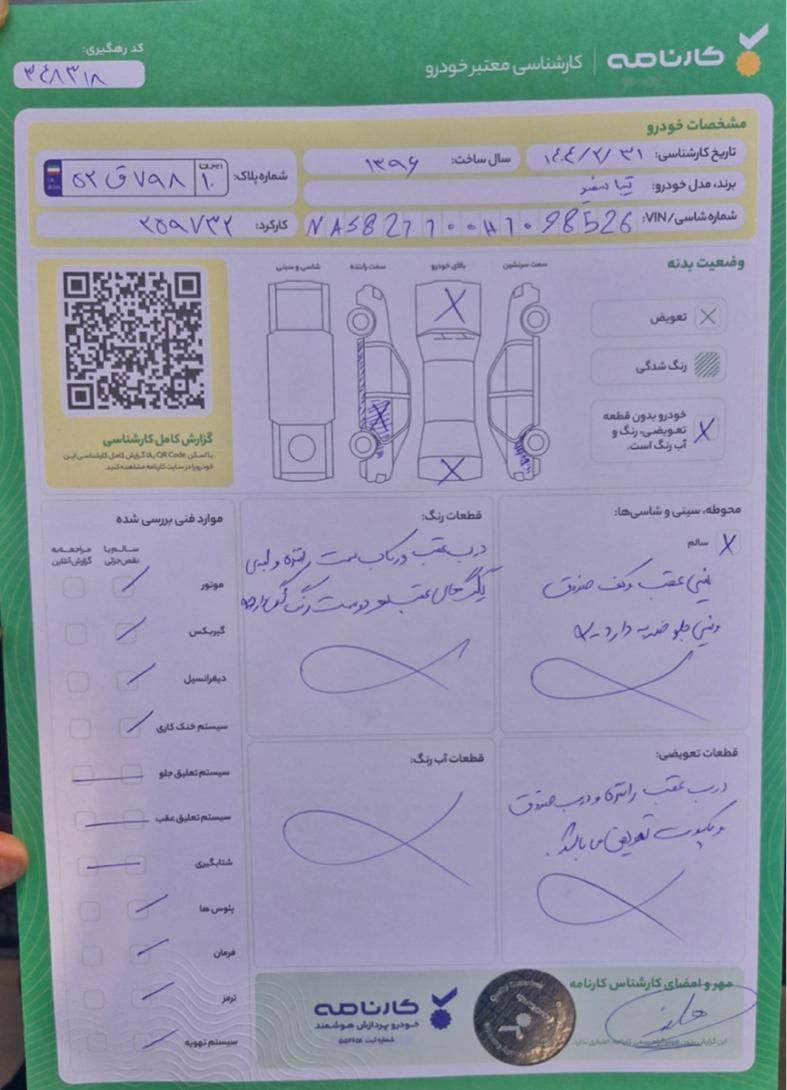 کارنامه
کارشناسی معتبر خودرو
کد رهگیری:
۳۴۸۳۱۸
مشخصات خودرو
تاریخ کارشناسی: ۱۴۰۴/۲/۳۱
سال ساخت: ۱۳۹۶
شماره پلاک: ایران ۱۰ ۵۲ ق ۷۹۸
برند، مدل خودرو: تیبا سفید
شماره شاسی/VIN: NAS827100H1098526
کارکرد: ۲۵۹۷۳۲
وضعیت بدنه
تعویض
رنگ شدگی
خودرو بدون قطعه
تعویضی، رنگ و
آب رنگ است.
سمت سرنشین
بالای خودرو
سمت راننده
شاسی و سینی
گزارش کامل کارشناسی
با اسکن QR Code بالا گزارش کامل کارشناسی این
خودرو را در سایت کارنامه مشاهده کنید.
محوطه، سینی و شاسی‌ها:
سالم
سینی عقب و کف صندوق
و سینی جلو ضربه دارد
قطعات رنگ:
درب عقب و رکاب سمت راننده و لبه‌ی
گلگیرهای عقب دو سمت رنگ
قطعات تعویضی:
درب عقب راننده و درب صندوق
و کاپوت تعویض می‌باشد.
قطعات آب رنگ:
موارد فنی بررسی شده
سالم یا
نقص جزئی
مراجعه به
گزارش آنلاین
موتور
گیربکس
دیفرانسیل
سیستم خنک کاری
سیستم تعلیق جلو
سیستم تعلیق عقب
شتابگیری
پلوس ها
فرمان
ترمز
سیستم تهویه
مهر و امضای کارشناس کارنامه
کارنامه
خودرو پردازش هوشمند